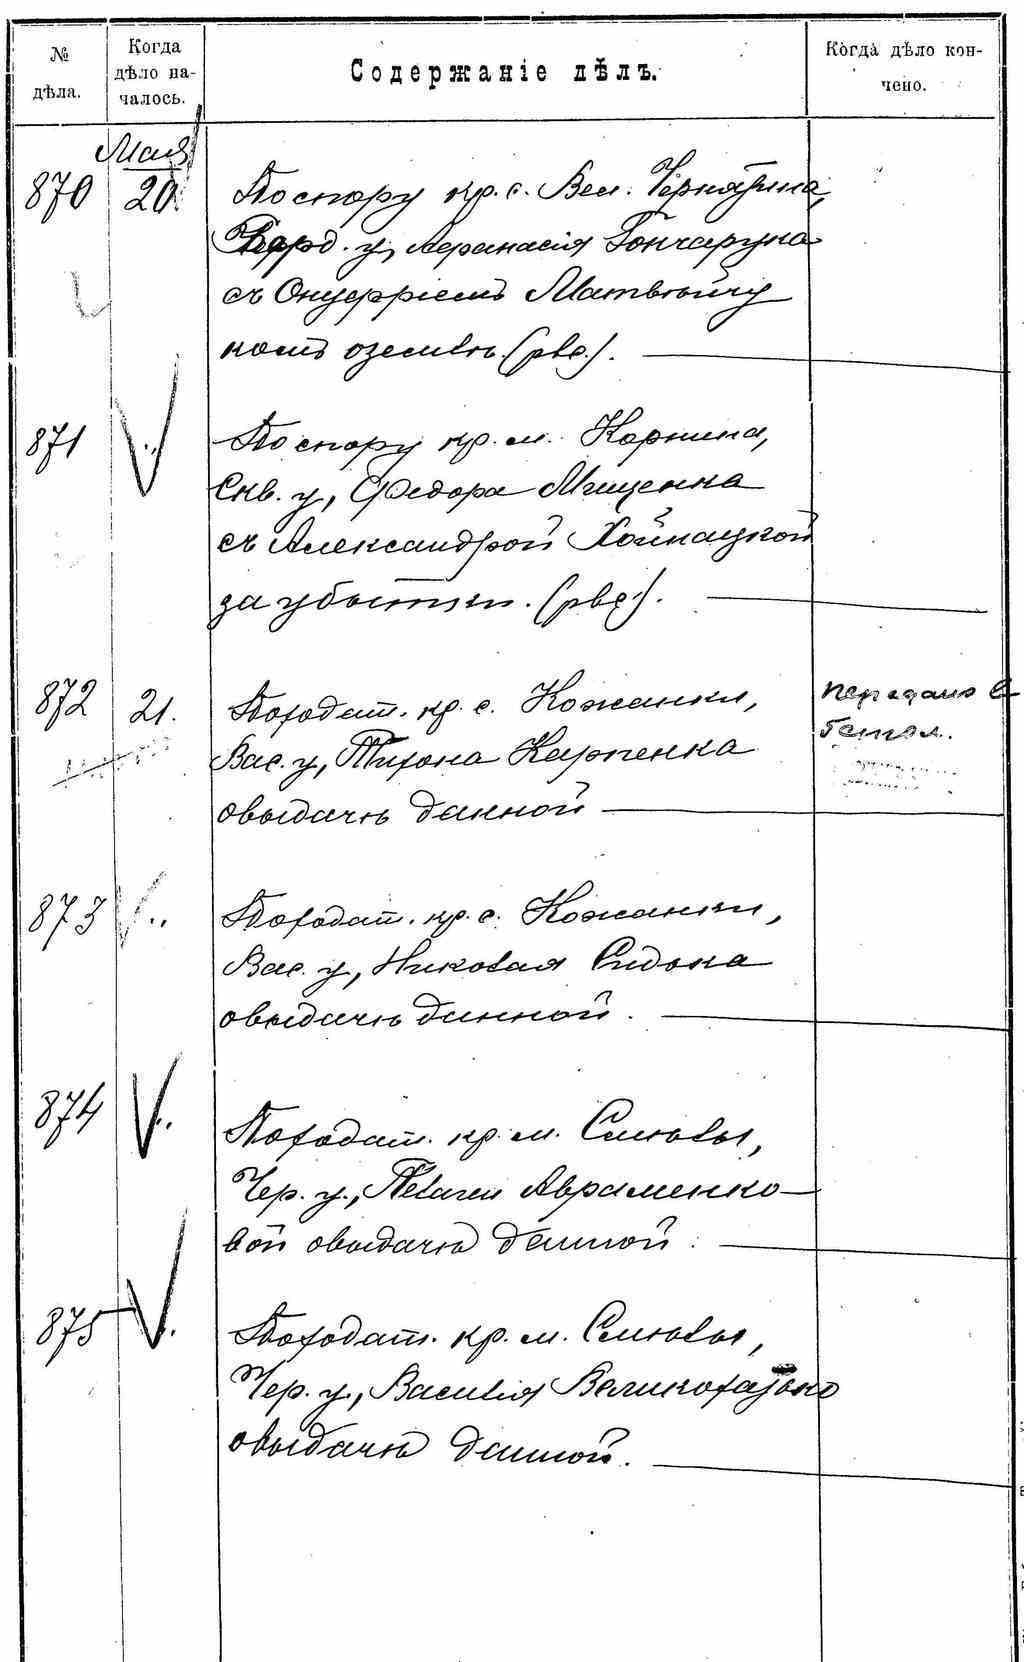 № дѣла.
Когда дѣло на-
чалось.
Содержаніе дѣлъ.
Когда дѣло кон-
чено.
Мая
870 20 По спору кр. с. Вел. Чернятина,
Бердѣ. у, Афанасія Гончарука
съ Онуфріемъ Матвѣйчу
комъ о землѣ. (рвс.).
871 По спору кр. м. Корнина,
Скв. у, Федора Мищенка
съ Александрой Хойнацкой
за убытки. (рвс.).
872 21. По ходат. кр. с. Кожанки,
Вас. у, Тихона Карпенка
о выдачѣ данной
передано в
873 По ходат. кр. с. Кожанки,
Вас. у, Николая Сидока
о выдачѣ данной.
874 По ходат. кр. м. Смѣлы,
Чер. у., Пелагеи Авраменко-
вой о выдачѣ данной.
875 По ходат. кр. м. Смѣлы,
Чер. у., Василія
о выдачѣ данной.